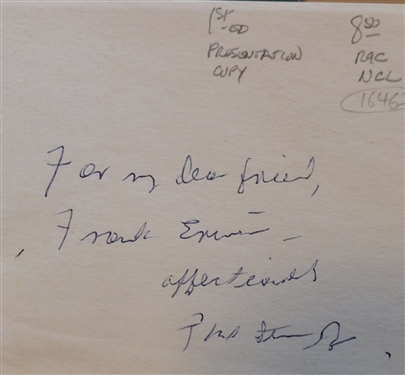 1ST ED
PRESENTATION
COPY
8 50
RAC
NCL
For my dear friend,
Frank Erwin –
affectionately